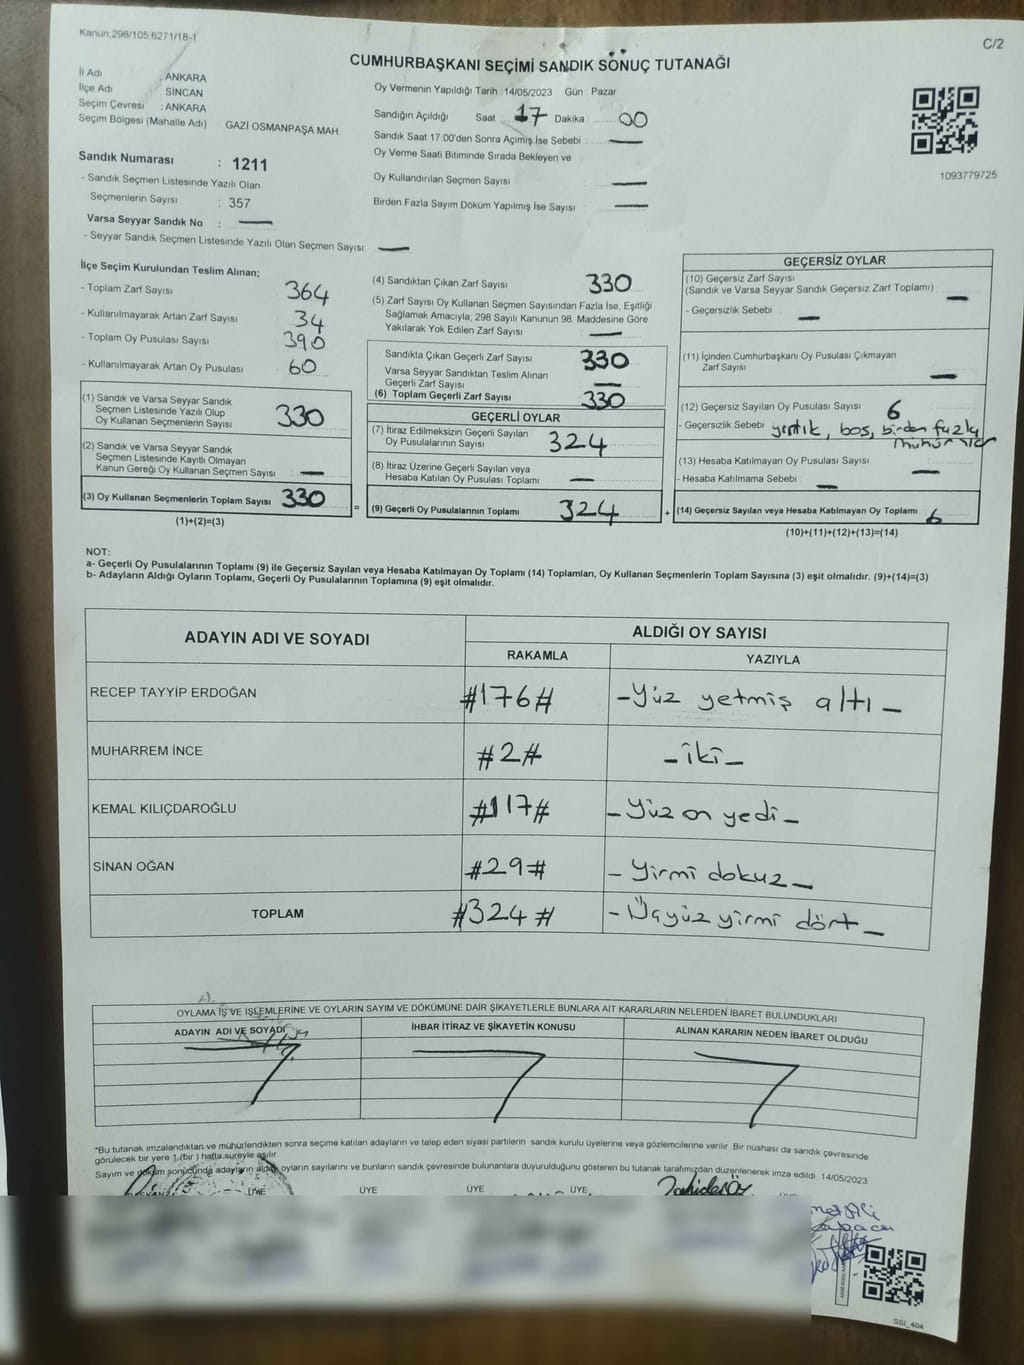 Kanun:298/105,6271/18-1
C/2
CUMHURBAŞKANI SEÇİMİ SANDIK SONUÇ TUTANAĞI
İl Adı : ANKARA
İlçe Adı : SİNCAN
Seçim Çevresi : ANKARA
Seçim Bölgesi (Mahalle Adı) : GAZİ OSMANPAŞA MAH.
Oy Vermenin Yapıldığı Tarih : 14/05/2023 Gün : Pazar
Sandığın Açıldığı Saat 17 Dakika : 00
Sandık Saat 17.00'den Sonra Açılmış İse Sebebi : —
Oy Verme Saati Bitiminde Sırada Bekleyen ve
Oy Kullandırılan Seçmen Sayısı —
Birden Fazla Sayım Döküm Yapılmış İse Sayısı —
1093779725
Sandık Numarası : 1211
- Sandık Seçmen Listesinde Yazılı Olan
Seçmenlerin Sayısı : 357
Varsa Seyyar Sandık No : —
- Seyyar Sandık Seçmen Listesinde Yazılı Olan Seçmen Sayısı: —
İlçe Seçim Kurulundan Teslim Alınan;
- Toplam Zarf Sayısı 364
- Kullanılmayarak Artan Zarf Sayısı 34
- Toplam Oy Pusulası Sayısı 390
- Kullanılmayarak Artan Oy Pusulası 60
(1) Sandık ve Varsa Seyyar Sandık
Seçmen Listesinde Yazılı Olup
Oy Kullanan Seçmenlerin Sayısı 330
(2) Sandık ve Varsa Seyyar Sandık
Seçmen Listesinde Kayıtlı Olmayan
Kanun Gereği Oy Kullanan Seçmen Sayısı —
(3) Oy Kullanan Seçmenlerin Toplam Sayısı 330
(1)+(2)=(3)
(4) Sandıktan Çıkan Zarf Sayısı 330
(5) Zarf Sayısı Oy Kullanan Seçmen Sayısından Fazla İse, Eşitliği
Sağlamak Amacıyla, 298 Sayılı Kanunun 98. Maddesine Göre
Yakılarak Yok Edilen Zarf Sayısı —
Sandıkta Çıkan Geçerli Zarf Sayısı 330
Varsa Seyyar Sandıktan Teslim Alınan
Geçerli Zarf Sayısı —
(6) Toplam Geçerli Zarf Sayısı 330
GEÇERLİ OYLAR
(7) İtiraz Edilmeksizin Geçerli Sayılan
Oy Pusulalarının Sayısı 324
(8) İtiraz Üzerine Geçerli Sayılan veya
Hesaba Katılan Oy Pusulası Toplamı —
= (9) Geçerli Oy Pusulalarının Toplamı 324 +
GEÇERSİZ OYLAR
(10) Geçersiz Zarf Sayısı
(Sandık ve Varsa Seyyar Sandık Geçersiz Zarf Toplamı) : —
- Geçersizlik Sebebi : —
(11) İçinden Cumhurbaşkanı Oy Pusulası Çıkmayan
Zarf Sayısı —
(12) Geçersiz Sayılan Oy Pusulası Sayısı 6
- Geçersizlik Sebebi : yırtık, boş, birden fazla
mühür var
(13) Hesaba Katılmayan Oy Pusulası Sayısı —
- Hesaba Katılmama Sebebi : —
(14) Geçersiz Sayılan veya Hesaba Katılmayan Oy Toplamı 6
(10)+(11)+(12)+(13)=(14)
NOT:
a- Geçerli Oy Pusulalarının Toplamı (9) ile Geçersiz Sayılan veya Hesaba Katılmayan Oy Toplamı (14) Toplamları, Oy Kullanan Seçmenlerin Toplam Sayısına (3) eşit olmalıdır. (9)+(14)=(3)
b- Adayların Aldığı Oyların Toplamı, Geçerli Oy Pusulalarının Toplamına (9) eşit olmalıdır.
ADAYIN ADI VE SOYADI ALDIĞI OY SAYISI
RAKAMLA YAZIYLA
RECEP TAYYİP ERDOĞAN #176# -Yüz yetmiş altı-
MUHARREM İNCE #2# -iki-
KEMAL KILIÇDAROĞLU #117# -Yüz on yedi-
SİNAN OĞAN #29# -Yirmi dokuz-
TOPLAM #324# -Üçyüz yirmi dört-
OYLAMA İŞ VE İŞLEMLERİNE VE OYLARIN SAYIM VE DÖKÜMÜNE DAİR ŞİKAYETLERLE BUNLARA AİT KARARLARIN NELERDEN İBARET BULUNDUKLARI
ADAYIN ADI VE SOYADI İHBAR İTİRAZ VE ŞİKAYETİN KONUSU ALINAN KARARIN NEDEN İBARET OLDUĞU
*Bu tutanak imzalandıktan ve mühürlendikten sonra seçime katılan adayların ve talep eden siyasi partilerin sandık kurulu üyelerine veya gözlemcilerine verilir. Bir nüshası da sandık çevresinde
görülecek bir yere 1 (bir) hafta süreyle asılır.
Sayım ve döküm sonucunda adayların aldığı oyların sayılarını ve bunların sandık çevresinde bulunanlara duyurulduğunu gösteren bu tutanak tarafımızdan düzenlenerek imza edildi. 14/05/2023
ÜYE ÜYE ÜYE ÜYE
SSI_404